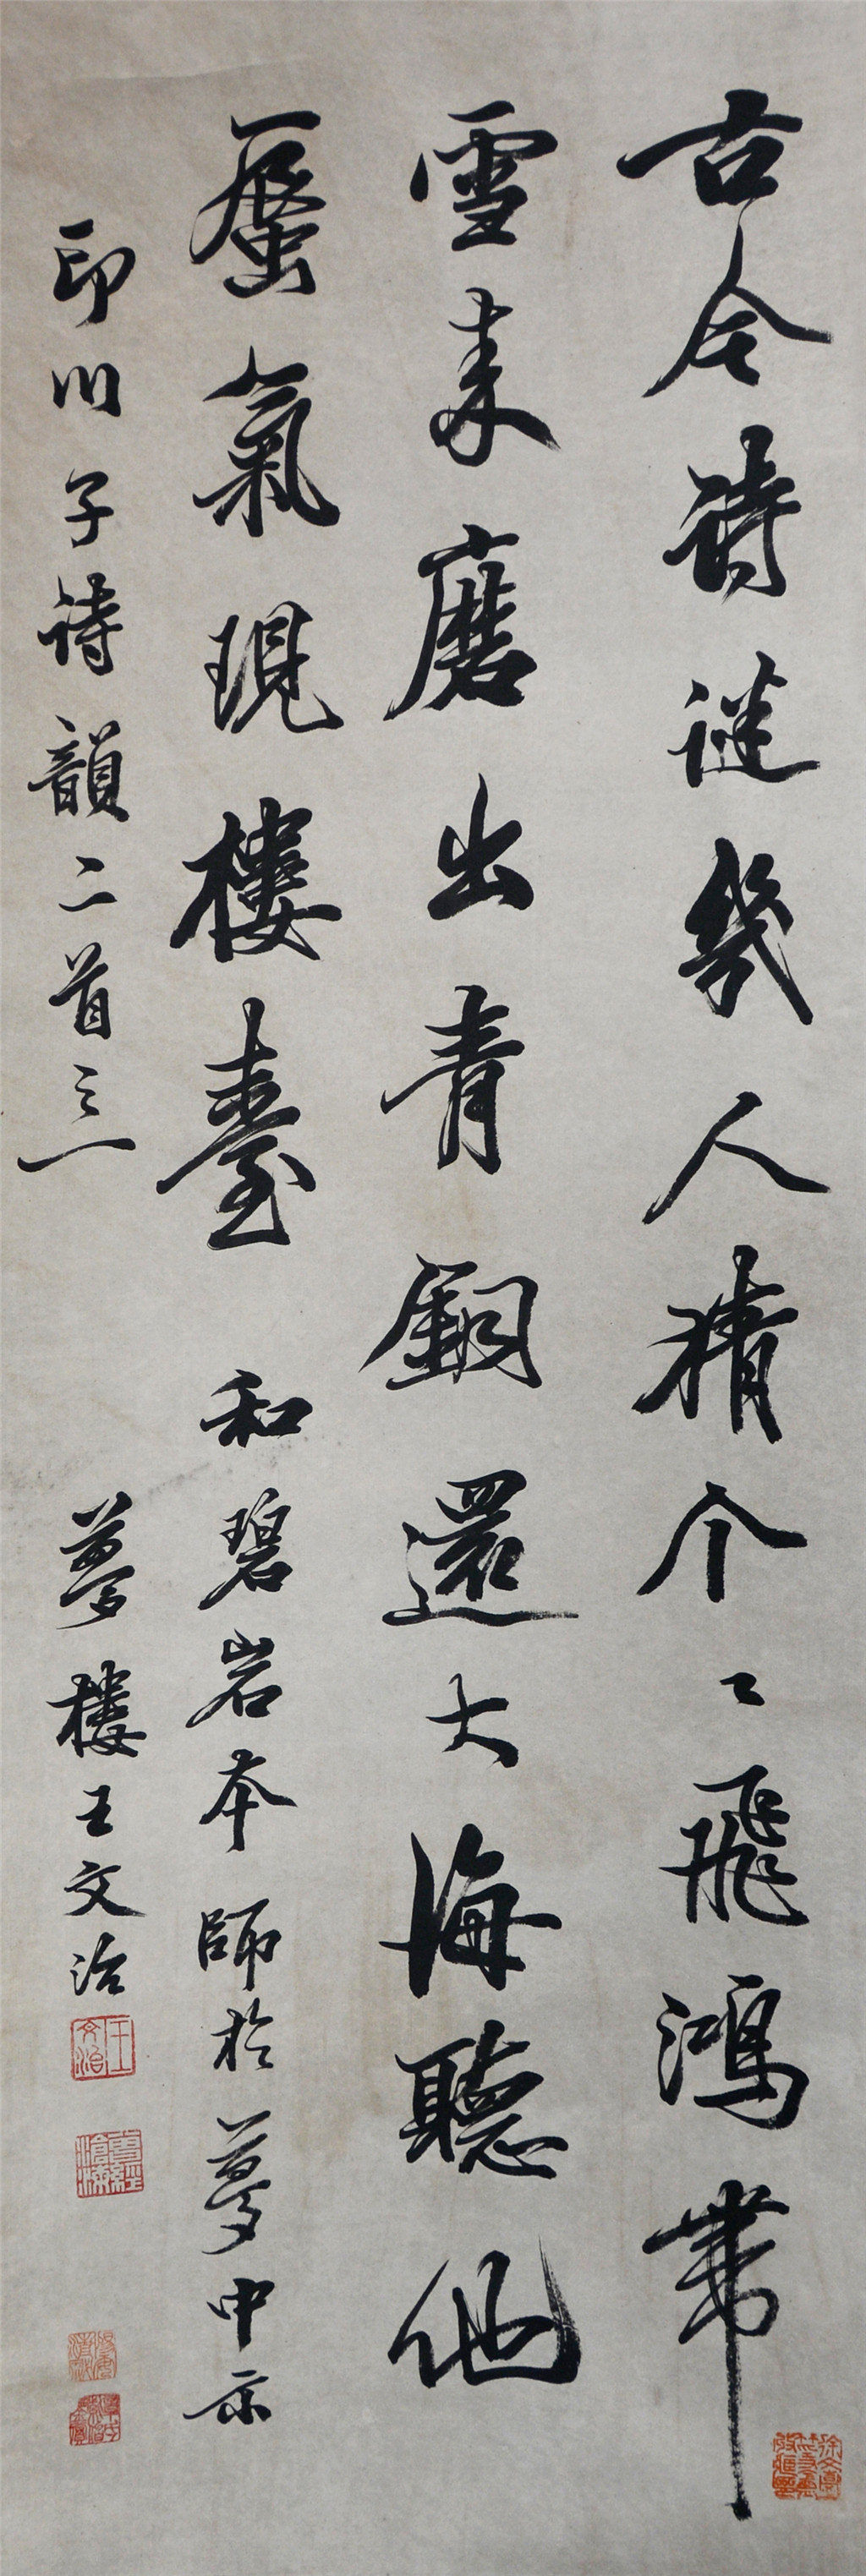 古今诗谜幾人猜个々飛鴻帶
雪来磨出青銅還大海聽他
蜃氣現樓臺 和碧岩本師於夢中示
印川子诗韻二首之一 夢樓王文治
王文治